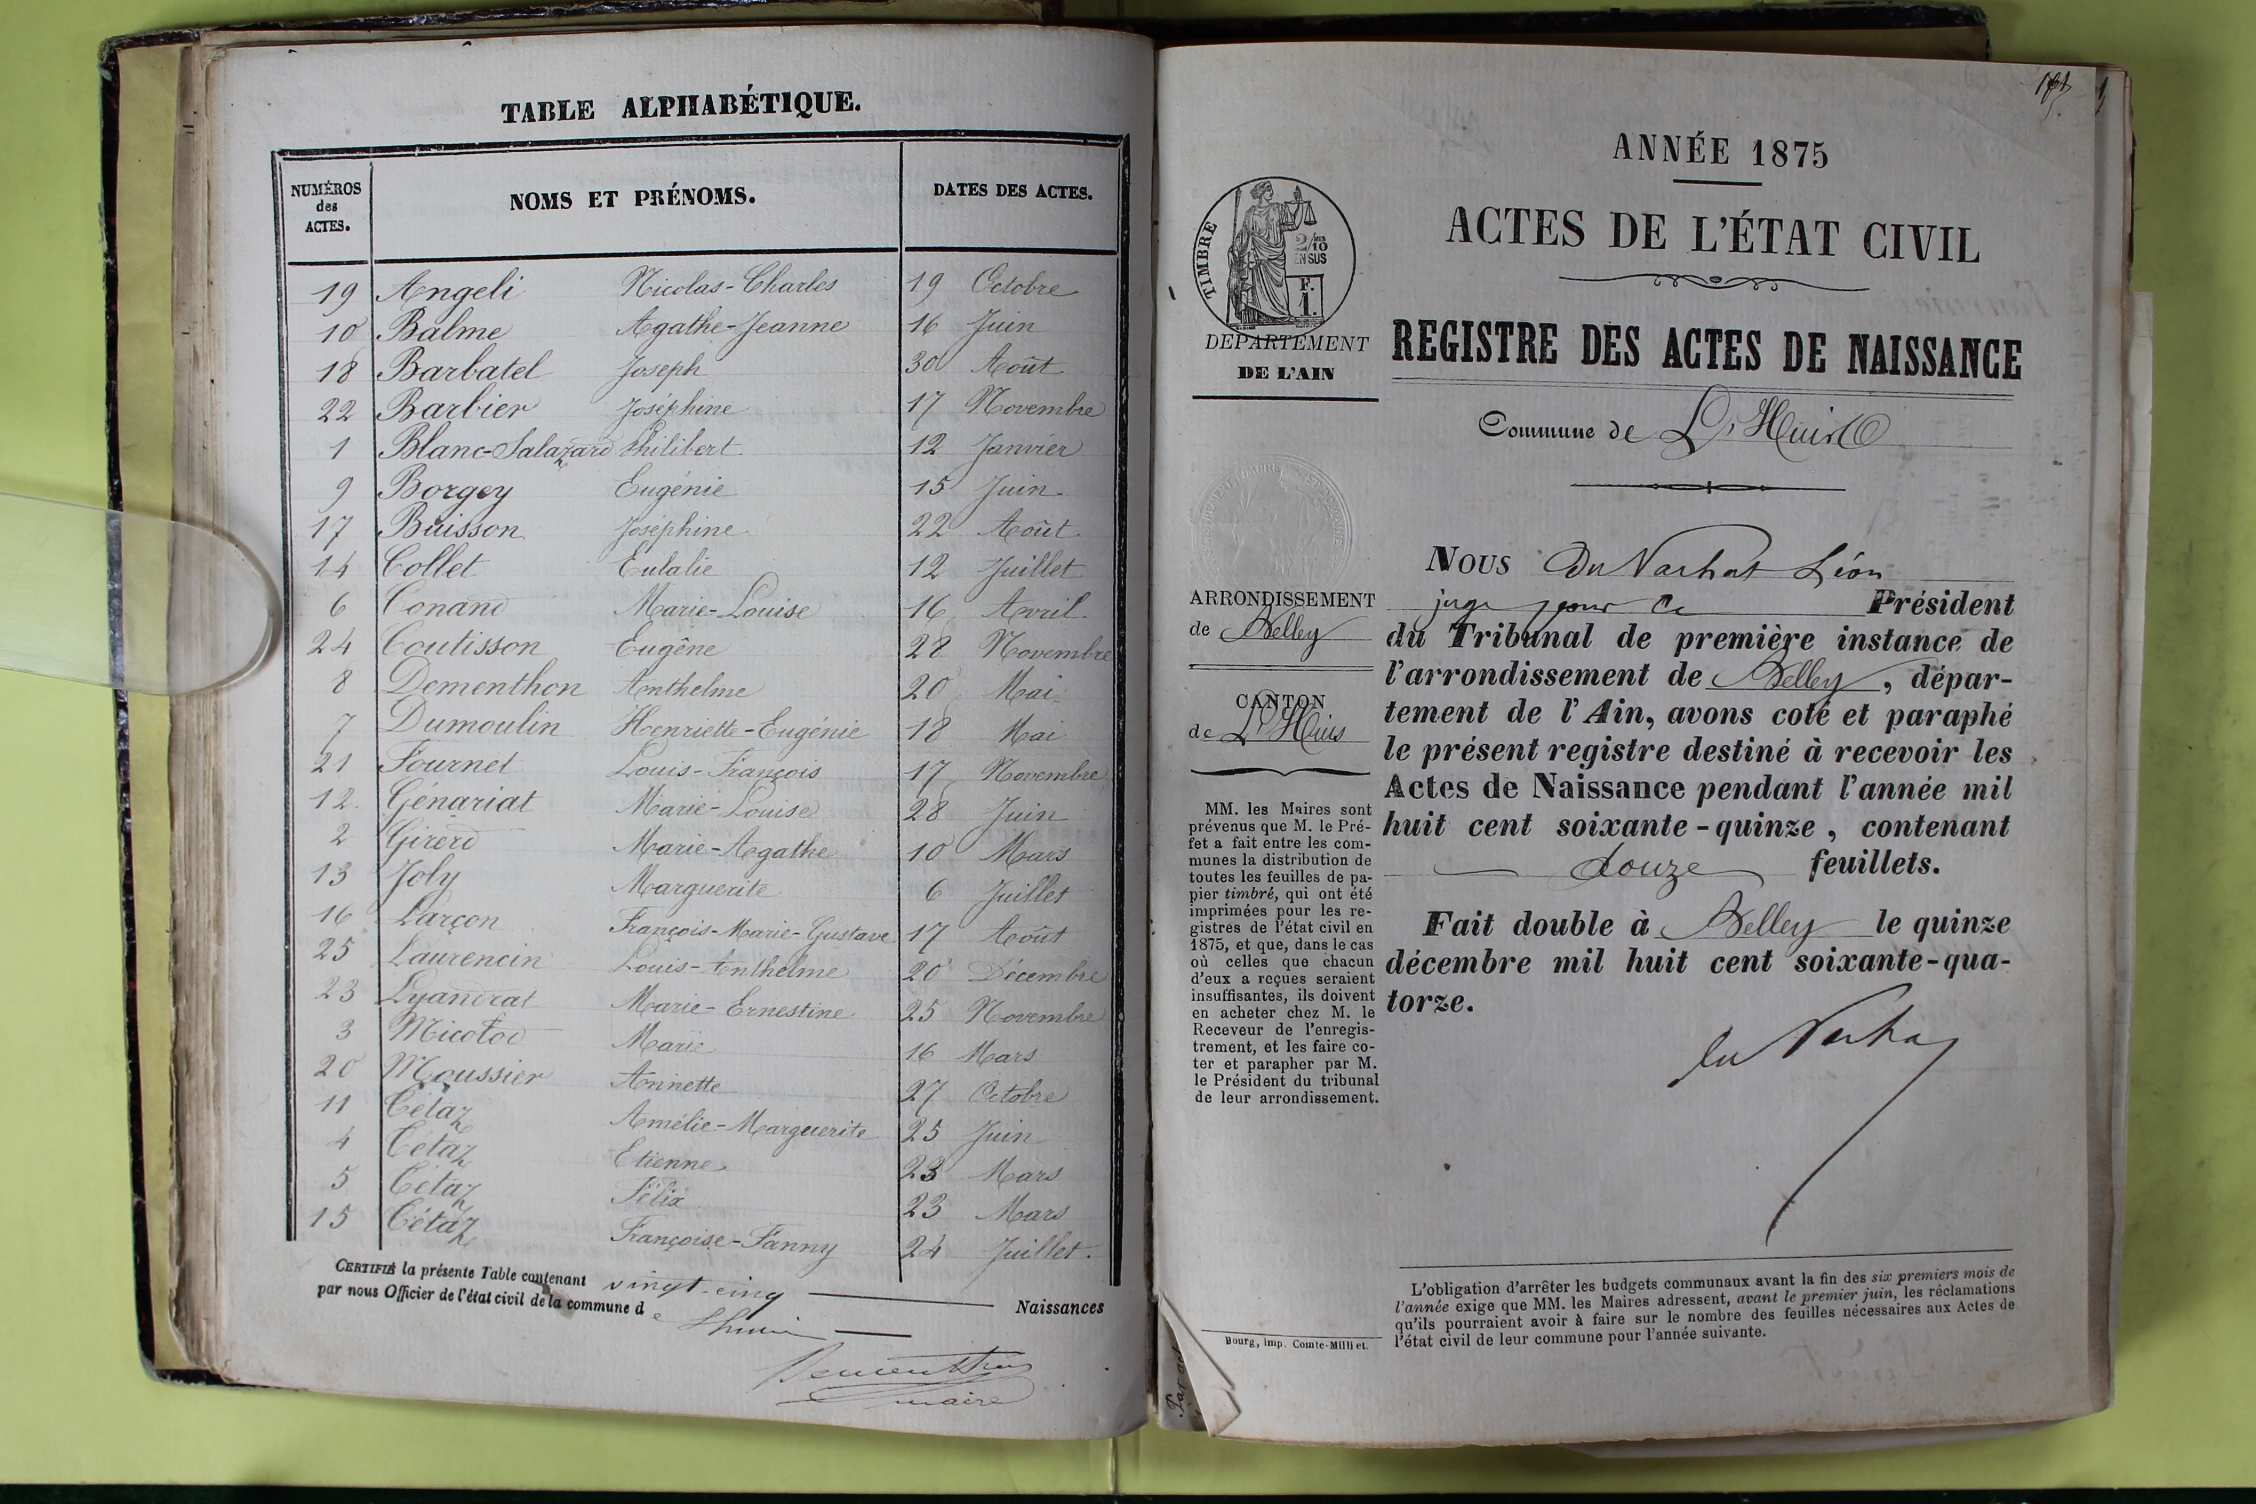 TABLE ALPHABÉTIQUE.
NUMÉROS des ACTES. NOMS ET PRÉNOMS. DATES DES ACTES.
19 Angeli Nicolas-Charles 19 Octobre
10 Balme Agathe-Jeanne 16 Juin
18 Barbatel Joseph 30 Août
22 Barbier Joséphine 17 Novembre
1 Blanc-Salazard Philibert 12 Janvier
9 Borgey Eugénie 15 Juin
17 Buisson Joséphine 22 Août
14 Collet Eulalie 12 Juillet
6 Conand Marie-Louise 16 Avril
24 Coutisson Eugêne 28 Novembre
8 Dementhon Anthelme 20 Mai
7 Dumoulin Henriette-Eugénie 18 Mai
21 Fournet Louis-François 17 Novembre
12 Génariat Marie-Louise 28 Juin
2 Girerd Marie-Agathe 10 Mars
13 Joly Marguerite 6 Juillet
16 Larçon François-Marie-Gustave 17 Août
25 Laurencin Louis-Anthelme 20 Décembre
23 Lyandrat Marie-Ernestine 25 Novembre
3 Micotod Marie 16 Mars
20 Moussier Annette 27 Octobre
11 Cétaz Amélie-Marguerite 25 Juin
4 Cétaz Etienne 23 Mars
5 Cétaz Félix 23 Mars
15 Cétaz Françoise-Fanny 24 Juillet.
CERTIFIÉ la présente Table contenant vingt-cinq Naissances
par nous Officier de l'état civil de la commune de Lhuis
Dementhon
maire
ANNÉE 1875
ACTES DE L'ÉTAT CIVIL
TIMBRE
2/10 EN SUS
F. 1.
DEPARTEMENT
DE L'AIN
REGISTRE DES ACTES DE NAISSANCE
Commune de L'Huis
NOUS du Varhat Léon
juge pour le Président
ARRONDISSEMENT
de Belley
du Tribunal de première instance de
l'arrondissement de Belley, dépar-
CANTON
de L'Huis
tement de l'Ain, avons coté et paraphé
le présent registre destiné à recevoir les
Actes de Naissance pendant l'année mil
huit cent soixante-quinze, contenant
douze feuillets.
Fait double à Belley le quinze
décembre mil huit cent soixante-qua-
torze.
MM. les Maires sont
prévenus que M. le Pré-
fet a fait entre les com-
munes la distribution de
toutes les feuilles de pa-
pier timbré, qui ont été
imprimées pour les re-
gistres de l'état civil en
1875, et que, dans le cas
où celles que chacun
d'eux a reçues seraient
insuffisantes, ils doivent
en acheter chez M. le
Receveur de l'enregis-
trement, et les faire co-
ter et parapher par M.
le Président du tribunal
de leur arrondissement.
L'obligation d'arrêter les budgets communaux avant la fin des six premiers mois de
l'année exige que MM. les Maires adressent, avant le premier juin, les réclamations
qu'ils pourraient avoir à faire sur le nombre des feuilles nécessaires aux Actes de
l'état civil de leur commune pour l'année suivante.
Bourg, imp. Comte-Milliet.